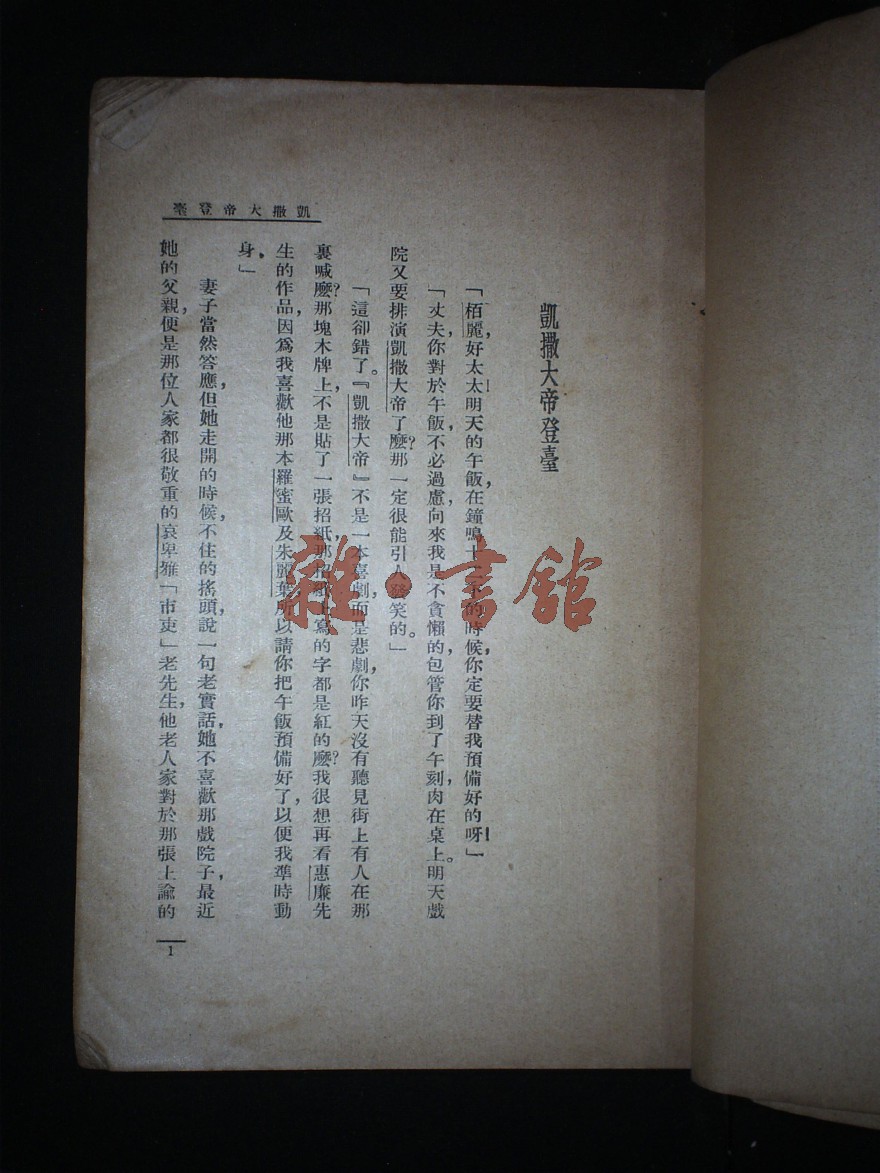 凱撒大帝登臺
凱撒大帝登臺
「栢麗好太太!明天的午飯,在鐘鳴十二下的時候,你定要替我預備好的呀!」
「丈夫,你對於午飯,不必過慮,向來我是不貪懶的,包管你到了午刻,肉在桌上。明天戲
院又要排演凱撒大帝了麽?那一定很能引人發笑的。」
「這卻錯了。『凱撒大帝』不是一本喜劇,而是悲劇,你昨天沒有聽見街上有人在那
裏喊麽?那塊木牌上,不是貼了一張招紙,那招紙上寫的字都是紅的麽?我很想再看惠廉先
生的作品,因爲我喜歡他那本羅蜜歐及朱麗葉,所以請你把午飯預備好了,以便我準時動
身,」
妻子當然答應,但她走開的時候,不住的搖頭,說一句老實話,她不喜歡那戲院子,最近
她的父親,便是那位人家都很敬重的哀卑雅「市吏」老先生,他老人家對於那張上諭的
1
雜·書館